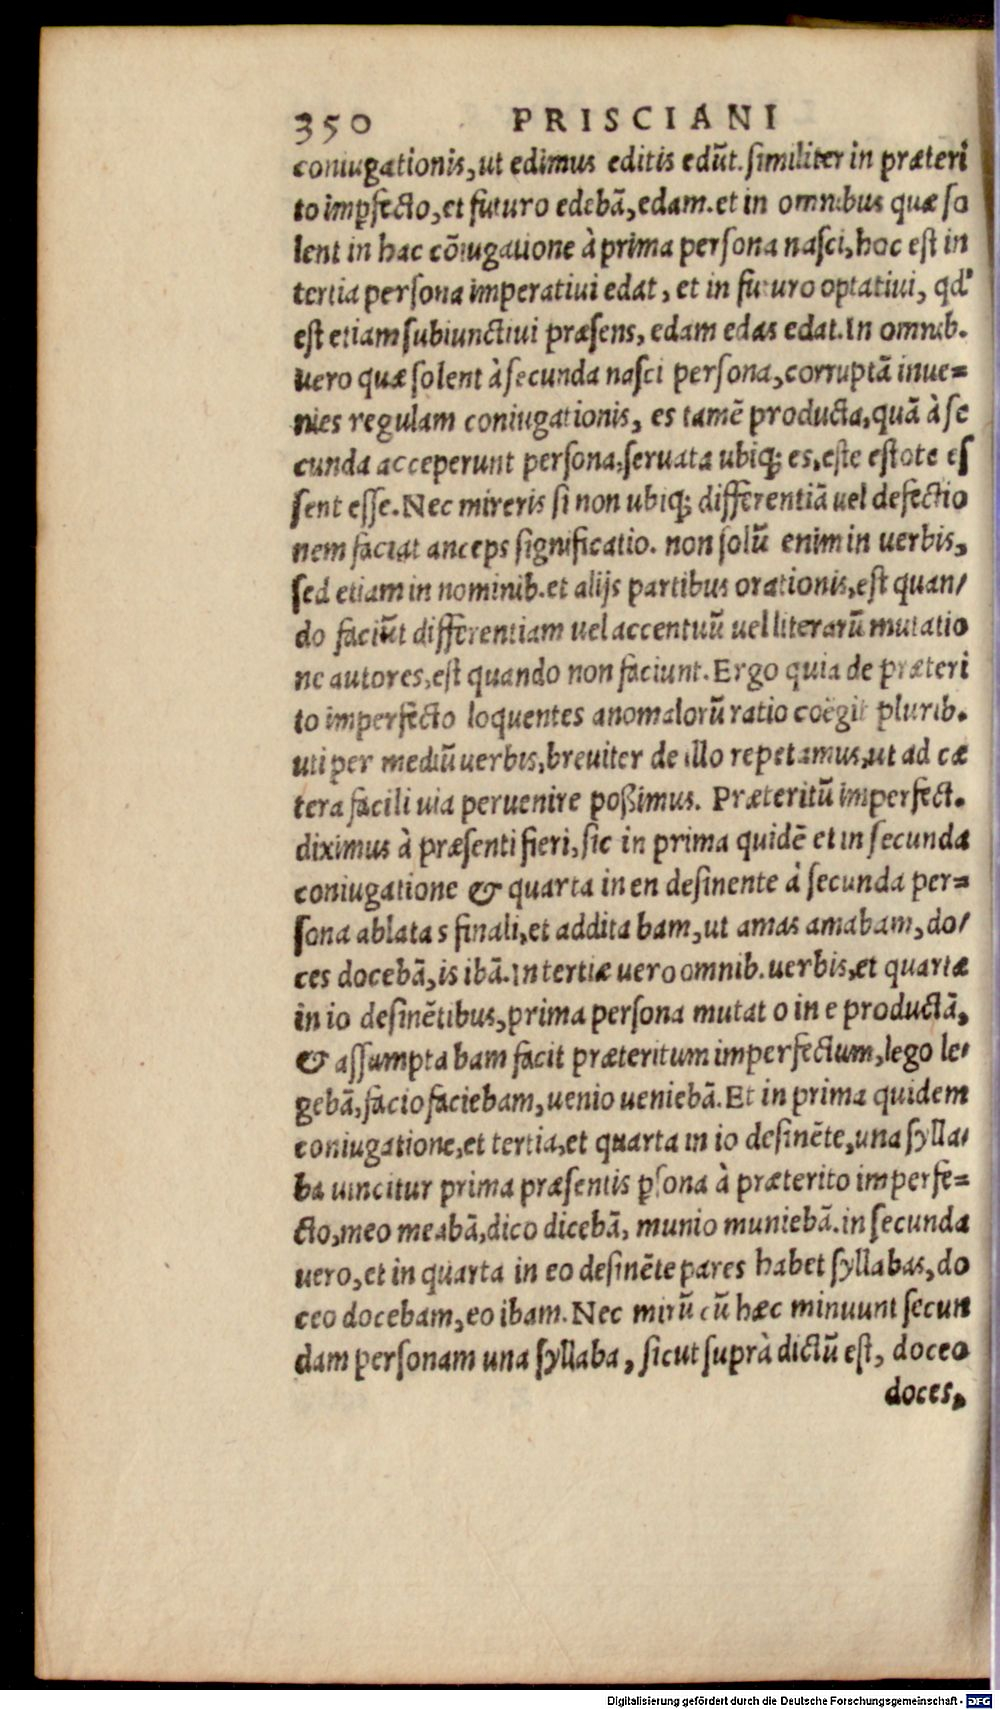 350 PRISCIANI
coniugationis, ut edimus editis edūt. similiter in præteri
to imꝑfecto, et futuro edebā, edam. et in omnibus quæ so
lent in hac cōiugatione à prima persona nasci, hoc est in
tertia persona imperatiui edat, et in futuro optatiui, qd'
est etiam subiunctiui præsens, edam edas edat. In omnib.
uero quæ solent à secunda nasci persona, corruptā inue=
nies regulam coniugationis, es tamē producta, quā à se
cunda acceperunt persona, seruata ubiq; es, este estote es
sent esse. Nec mireris si non ubiq; differentiā uel defectio
nem faciat anceps significatio. non solū enim in uerbis,
sed etiam in nominib. et alijs partibus orationis, est quan/
do faciūt differentiam uel accentuū uel literarū mutatio
ne autores, est quando non faciunt. Ergo quia de præteri
to imperfecto loquentes anomalorū ratio coëgit plurib.
uti per mediū uerbis, breuiter de illo repetamus, ut ad cæ
tera facili uia peruenire poßimus. Præteritū imperfect.
diximus à præsenti fieri, sic in prima quidē et in secunda
coniugatione & quarta in en desinente à secunda per=
sona ablata s finali, et addita bam, ut amas amabam, do/
ces docebā, is ibā. In tertiæ uero omnib. uerbis, et quartæ
in io desinētibus, prima persona mutat o in e productā,
& assumpta bam facit præteritum imperfectum, lego le/
gebā, facio faciebam, uenio ueniebā. Et in prima quidem
coniugatione, et tertia, et quarta in io desinēte, una sylla/
ba uincitur prima præsentis ꝑsona à præterito imperfe=
cto, meo meabā, dico dicebā, munio muniebā. in secunda
uero, et in quarta in eo desinēte pares habet syllabas, do
ceo docebam, eo ibam. Nec mirū cū hæc minuunt secun
dam personam una syllaba, sicut suprà dictū est, doceo
doces,
Digitalisierung gefördert durch die Deutsche Forschungsgemeinschaft - DFG